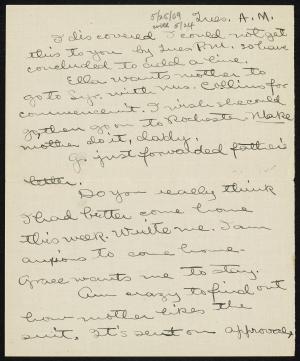 5/25/09 Tues. A.M.
week 5/24
I discovered I could not get
this to you by Tues P.M. so have
concluded to add a line.
Ella wants mother to
go to Syr. with Mrs. Collins for
commencem't. I wish she could
go, then go on to Rochester. Make
mother do it, daddy.
Go just forwarded father's
letter.
Do you really think
I had better come home
this week. Write me. I am
anxious to come home.
Grace wants me to stay.
Am crazy to find out
how mother likes the
suit. It's sent on approval,